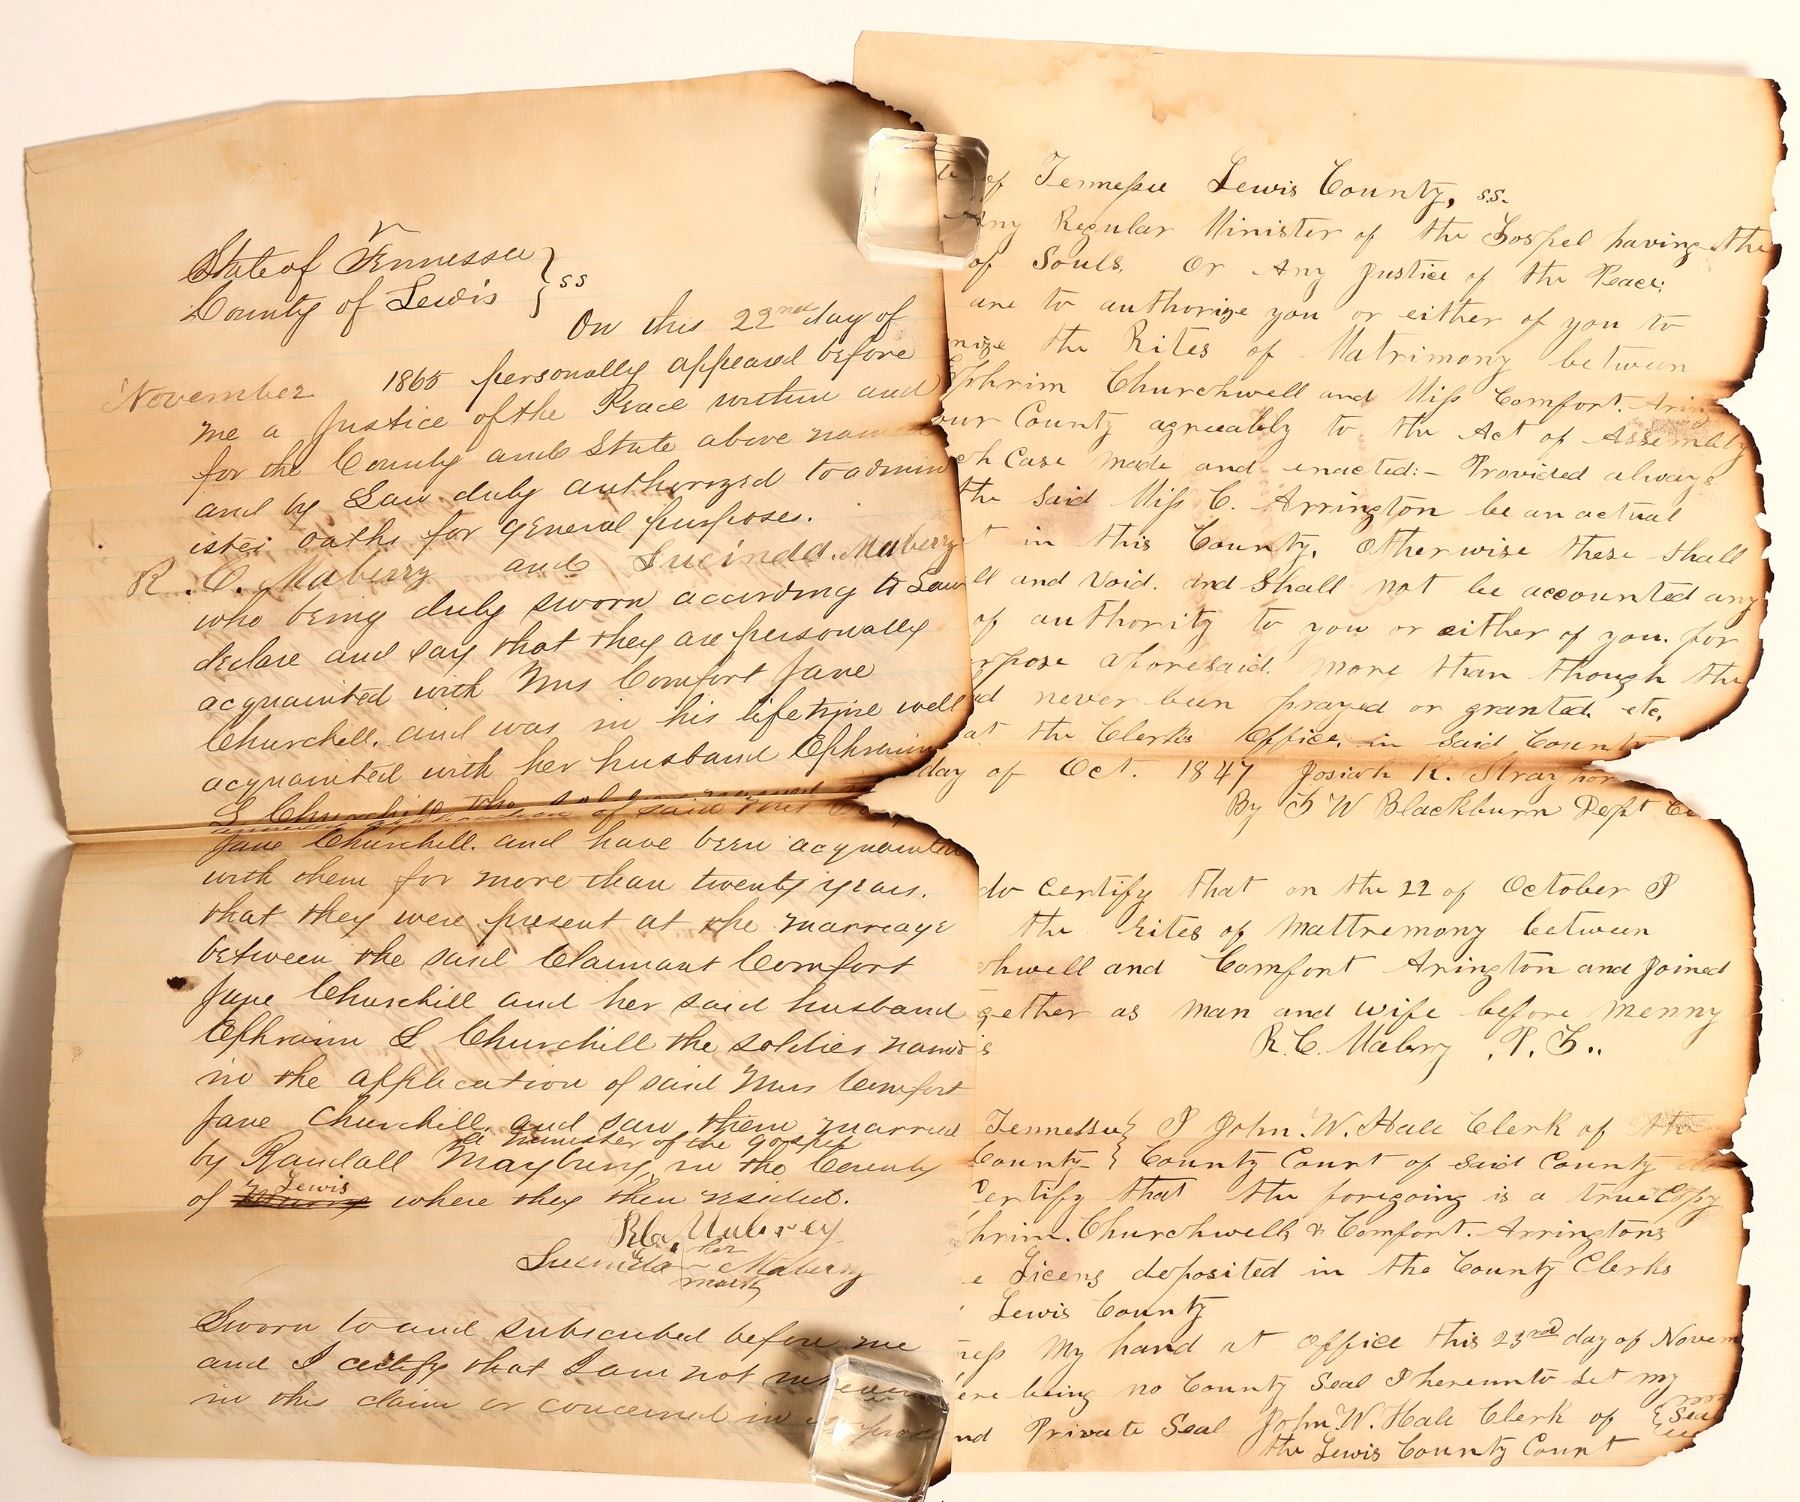 State of Tennessee } ss
County of Lewis
On this 22nd day of
November 1865 personally appeared before
me a Justice of the Peace within and
for the County and State above nam
and by Law duly authorized to admin
ister oaths for general purposes.
R. C. Maberry and Lucinda Maberry
who being duly sworn according to Law
declare and say that they are personally
acquainted with Mrs Comfort Jane
Churchill. and was in his lifetime well
acquainted with her husband Ephraim
S Churchill the
of said Mrs
Jane Churchill. and have been acquainted
with them for more than twenty years.
that they were present at the marriage
between the said Claimant Comfort
Jane Churchill and her said husband
Ephraim S Churchill the soldier named
in the application of said Mrs Comfort
Jane Churchill. and saw them married
a minister of the gospel
by Randall Maybury, in the County
Lewis
of where they then resided.
R C. Mabrey
her
Lucinda Maberry
mark
Sworn to and subscribed before me
and I certify that I am not
in this claim or concerned in
of Tennessee Lewis County, ss.
any Regular Minister of the Gospel having the
of Souls, Or Any Justice of the Peace;
are to authorize you or either of you to
nize the Rites of Matrimony between
Ephrim Churchwell and Miss Comfort. Arin
our County agreeably to the Act of Assembly
ch Case made and enacted:- Provided always
the said Miss C. Arrington be an actual
t in this County, Otherwise these shall
ll and Void. and Shall not be accounted any
of authority to you or either of you. for
rpose aforesaid. more than though the
ad never been prayed or granted. etc,
at the Clerks Office, in Said County
day of Oct. 1847 Josiah K. Stray hor
By G W Blackburn Dept C
do certify that on the 22 of October I
the Rites of Mattremony between
chwell and Comfort Arington and Joined
gether as man and wife before menny
s R. C. Mabry .P. G..
Tennessee } I John. W. Hale Clerk of the
County } County Court of Said County
Certify that the foregoing is a true Copy
hrim. Churchwells & Comfort. Arringtons
e Licens deposited in the County Clerks
Lewis County
ness My hand at office this 23rd day of Novem
ere being no County Seal I hereunto Set my
nd Private Seal John W. Hale Clerk of {Seal
the Lewis County Court